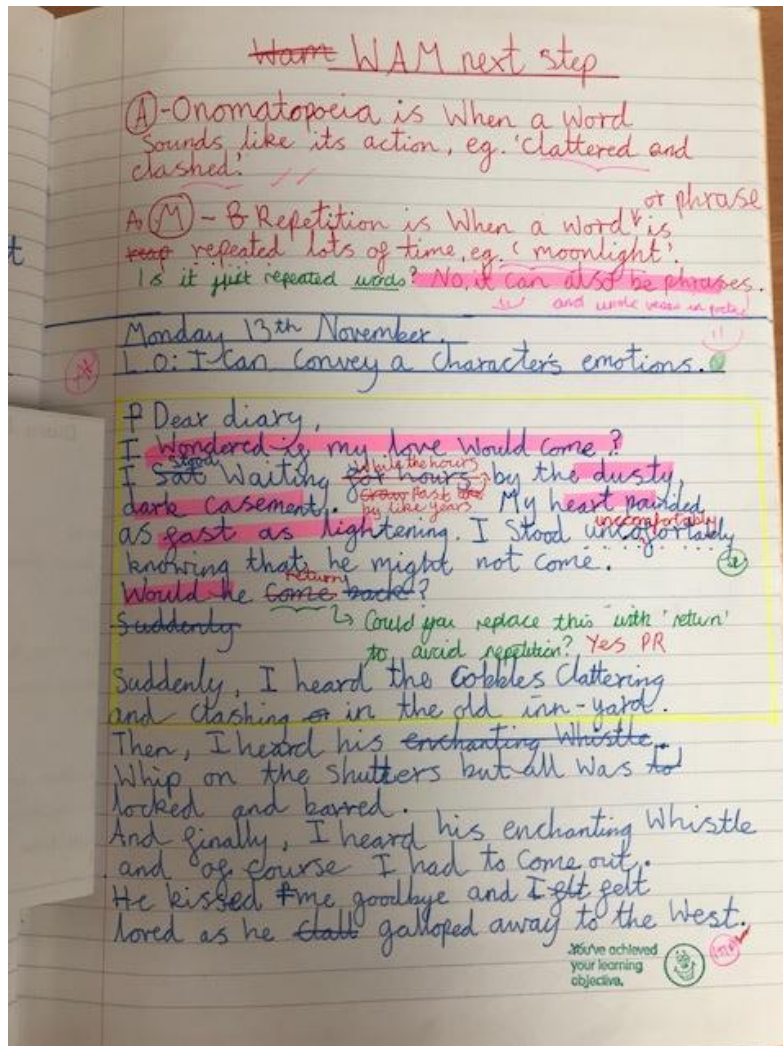 Wam WAM next step
(A)-Onomatopoeia is When a Word
Sounds like its action, eg. 'Clattered and
clashed'.
or phrase
A (M) - B Repetition is When a word is
reap repeated lots of time, eg. 'moonlight'.
Is it just repeated words? No, it can also be phrases.
and whole verses in
t
Monday 13th November.
L.O: I can Convey a Character's emotions.
P Dear diary,
I Wondered is my love Would come?
stood while the hours
I Sat Waiting for hours by the dusty,
Grow Past
dark casement. My heart pounded
by like years
uncomfortably
as fast as lightening. I Stood uncofortably
knowing that he might not come.
return
Would he come back?
Suddenly
Could you replace this with 'return'
to avoid repetition? Yes PR
Suddenly, I heard the Cobbles Clattering
and Clashing in the old inn-yard.
Then, I heard his enchanting Whistle.
Whip on the Shutters but all was to
locked and barred.
And finally, I heard his enchanting Whistle
and of course I had to come out.
He kissed me goodbye and I felt
loved as he galloped away to the West.
You've achieved
your learning
objective.